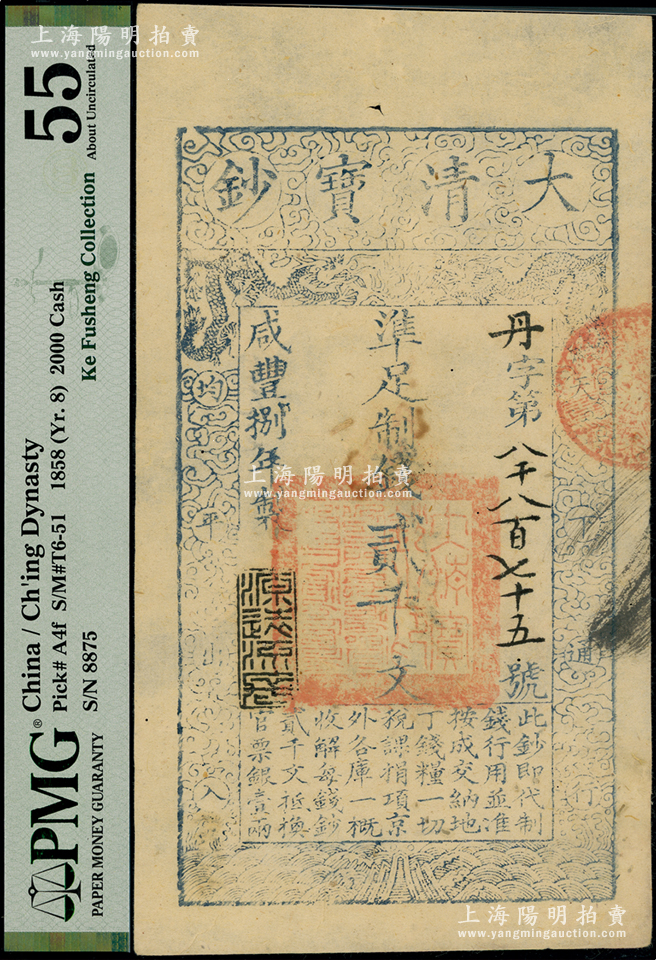 上海陽明拍賣
www.yangmingauction.com
PMG®
PAPER MONEY GUARANTY
China / Ch'ing Dynasty
Pick# A4f S/M#T6-51 1858 (Yr. 8) 2000 Cash
S/N 8875
Ke Fusheng Collection
55
About Uncirculated
大清寶鈔
丹字第八千八百七十五號
準足制錢貳千文
咸豐捌年製
下通行
均平入
此鈔即代制
錢行用並准
按成交納地
丁錢糧一切
稅課捐項京
外各庫一概
收解每錢鈔
貳千文抵換
官票銀壹兩
上海陽明拍賣
www.yangmingauction.com
上海陽明拍賣
www.yangmingauction.com